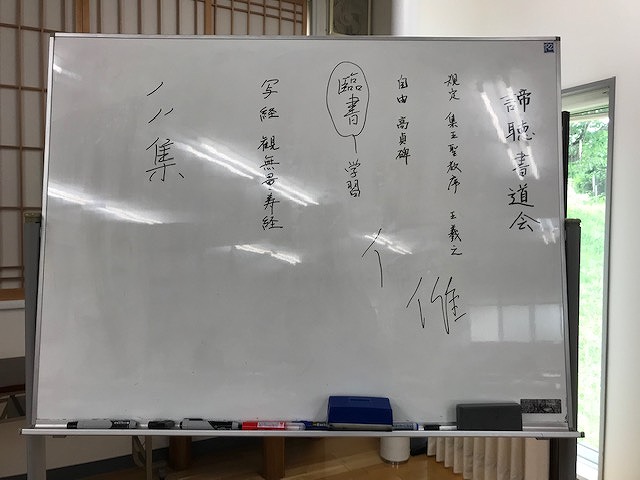 諦聴書道会
規定 集王聖教序 王羲之
自由 高貞碑
臨書 学習
写経 観無量寿経
集